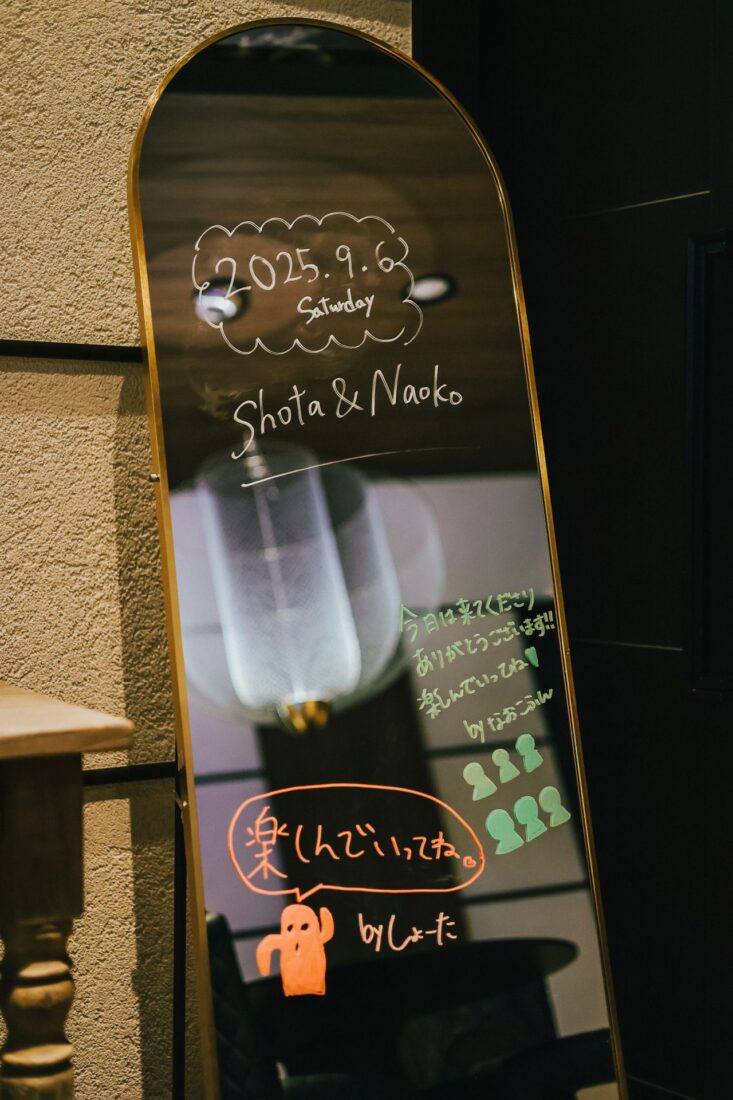 2025.9.6
Saturday
Shota & Naoko
今日は来てくださり
ありがとうございます!!
楽しんでいってね♥
by なおこふん
楽しんでいってね。
by しょーた